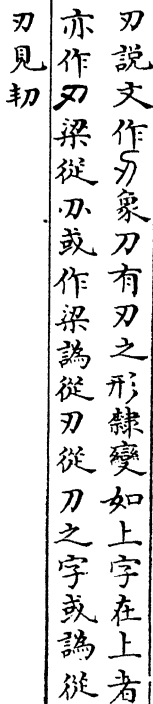 刃說文作刃象刀有刃之形隸變如上字在上者
亦作刄梁從刅或作梁譌從刃從刀之字或譌從
刃見韧